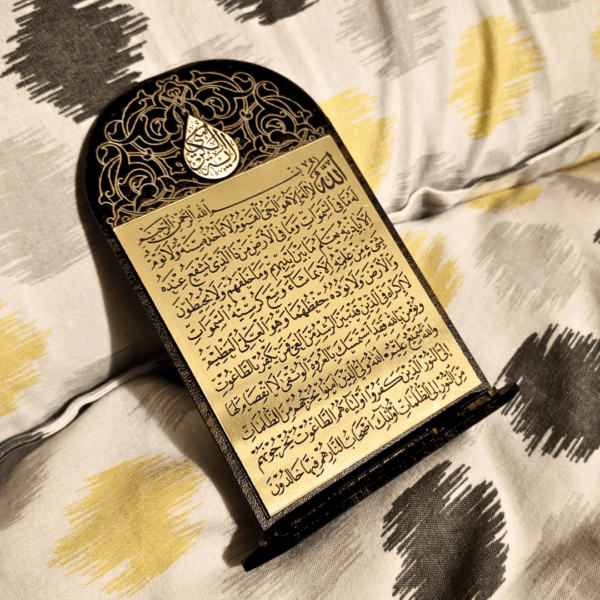 آية الكرسي
بسم الله الرحمن الرحيم
الله لا إله إلا هو الحي القيوم لا تأخذه سنة ولا نوم
له ما في السموات وما في الأرض من ذا الذي يشفع عنده
إلا بإذنه يعلم ما بين أيديهم وما خلفهم ولا يحيطون
بشيء من علمه إلا بما شاء وسع كرسيه السموات
والأرض ولا يؤده حفظهما وهو العلي العظيم
لا إكراه في الدين قد تبين الرشد من الغي فمن يكفر بالطاغوت
ويؤمن بالله فقد استمسك بالعروة الوثقى لا انفصام لها
والله سميع عليم الله ولي الذين آمنوا يخرجهم من الظلمات
إلى النور والذين كفروا أولياؤهم الطاغوت يخرجونهم
من النور إلى الظلمات أولئك أصحاب النار هم فيها خالدون